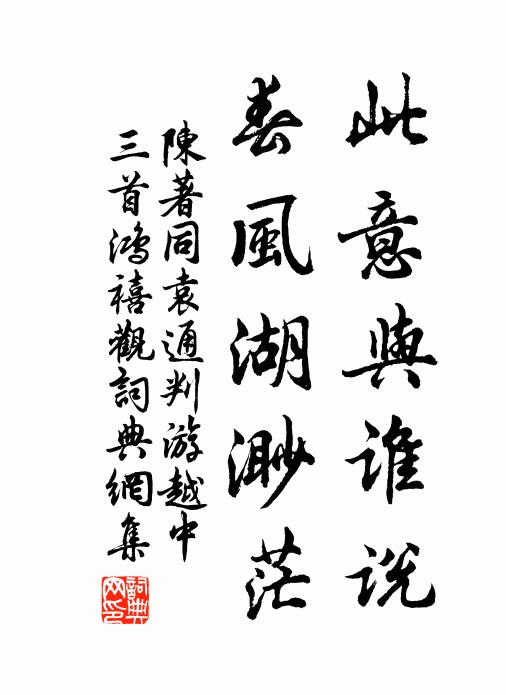 此意與誰說
春風湖渺茫
陳著同袁通判游越中
三首鴻禧觀詞典網集
詞典網印